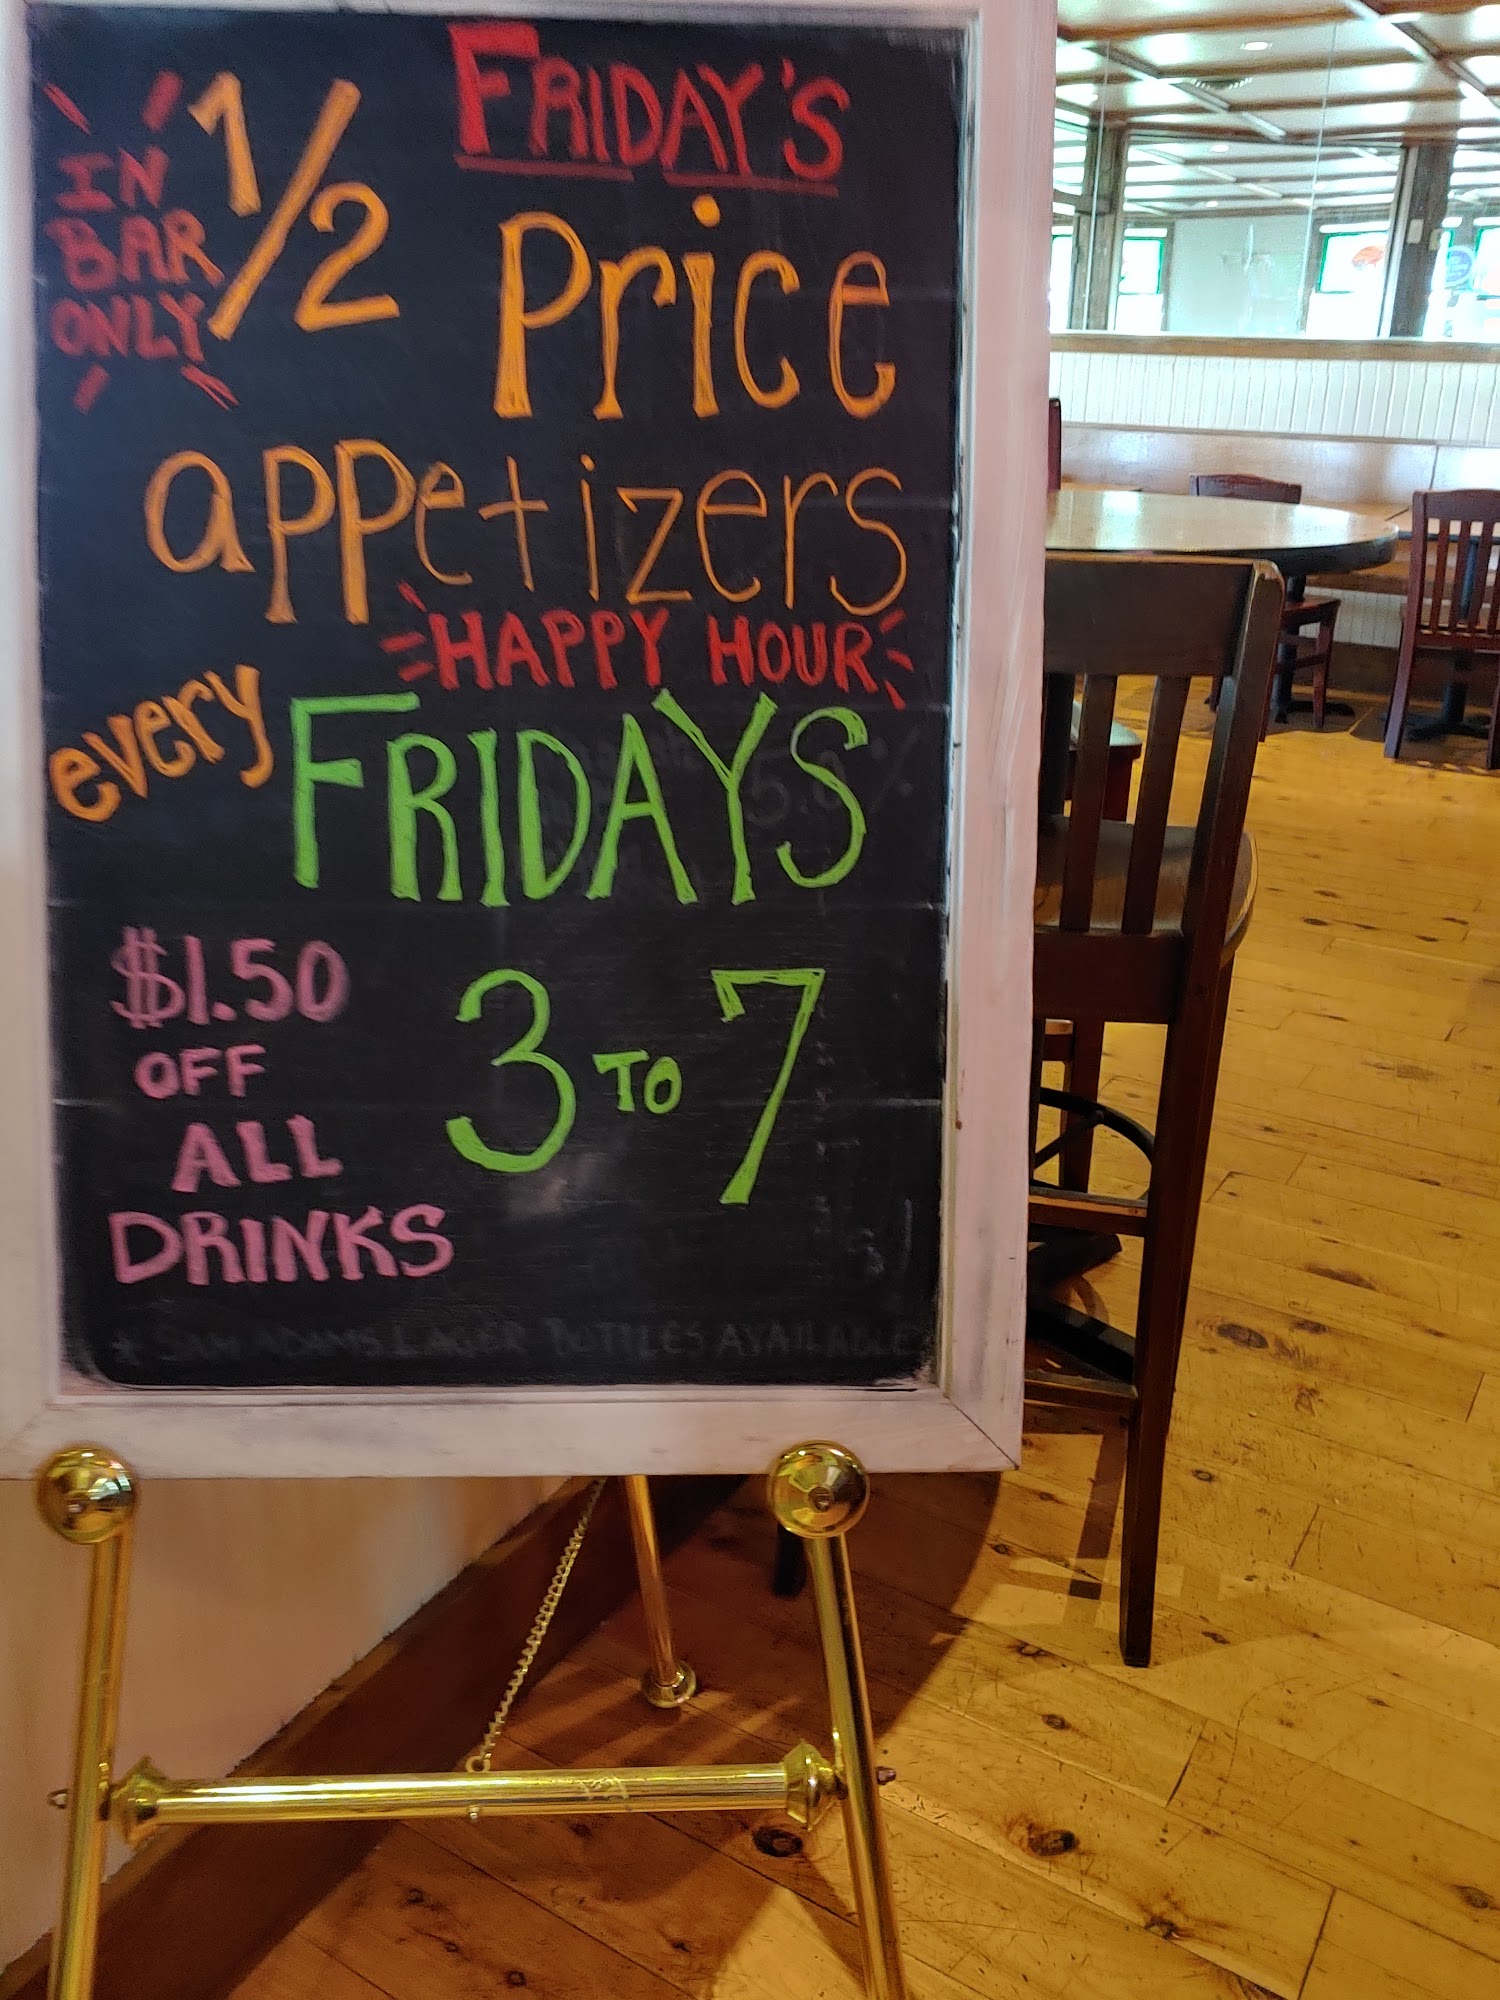 FRIDAY'S
IN
BAR
ONLY
1/2 Price
appetizers
HAPPY HOUR
every FRIDAYS
$1.50
OFF
ALL
DRINKS
3 TO 7
* SAM ADAMS LAGER BOTTLES AVAILABLE